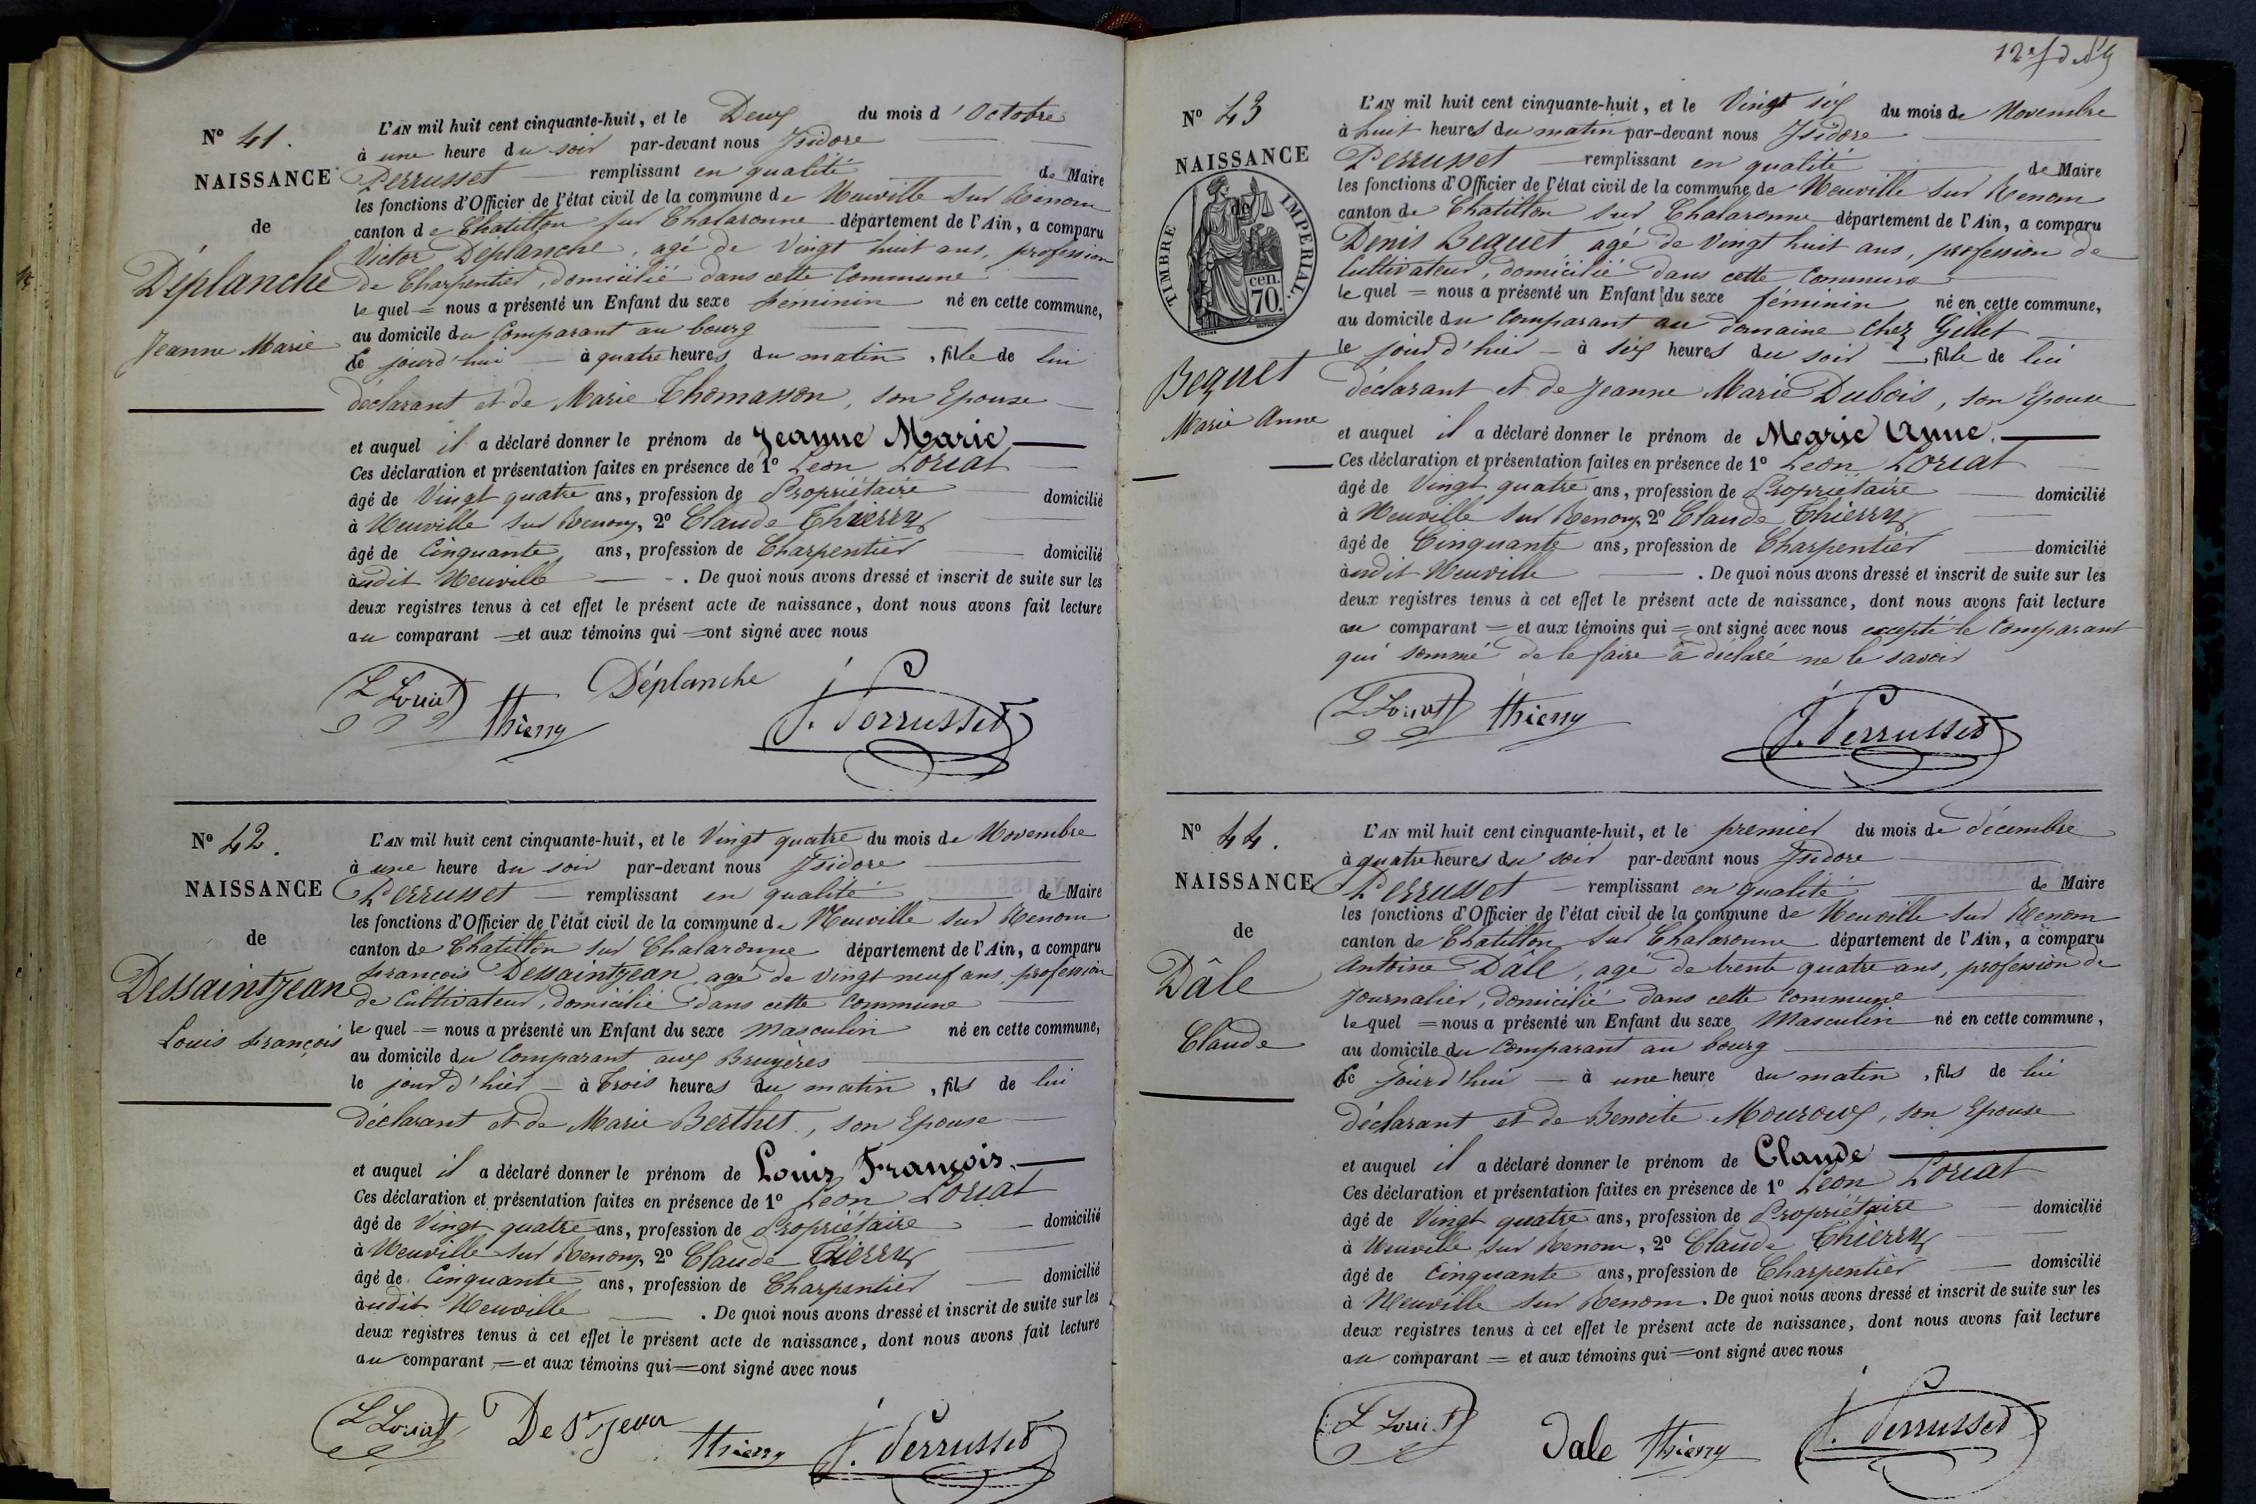 Nº 41.
NAISSANCE
de
Déplanche
Jeanne Marie
L'AN mil huit cent cinquante-huit, et le Deux du mois d'Octobre
à une heure du soir par-devant nous Isidore
Perrusset remplissant en qualité de Maire
les fonctions d'Officier de l'état civil de la commune de Neuville sur Renom
canton de Chatillon sur Chalaronne département de l'Ain, a comparu
Victor Déplanche, agé de Vingt huit ans, profession
de Charpentier, domicilié dans cette Commune
le quel = nous a présenté un Enfant du sexe féminin né en cette commune,
au domicile du Comparant au bourg
Ce jourd'hui à quatre heures du matin, fille de lui
déclarant et de Marie Thomasson, son Epouse
et auquel il a déclaré donner le prénom de Jeanne Marie
Ces déclaration et présentation faites en présence de 1º Léon Loriat
âgé de Vingt quatre ans, profession de Propriétaire domicilié
à Neuville sur Renom, 2º Claude Thierry
âgé de Cinquante ans, profession de Charpentier domicilié
audit Neuville. De quoi nous avons dressé et inscrit de suite sur les
deux registres tenus à cet effet le présent acte de naissance, dont nous avons fait lecture
au comparant = et aux témoins qui = ont signé avec nous
L Loriat Thierry Déplanche J. Perrusset
Nº 42.
NAISSANCE
de
Dessaintjean
Louis François
L'AN mil huit cent cinquante-huit, et le Vingt quatre du mois de Novembre
à une heure du soir par-devant nous Isidore
Perrusset remplissant en qualité de Maire
les fonctions d'Officier de l'état civil de la commune de Neuville sur Renom
canton de Chatillon sur Chalaronne département de l'Ain, a comparu
François Dessaintjean, agé de vingt neuf ans, profession
de Cultivateur, domicilié dans cette commune
le quel = nous a présenté un Enfant du sexe Masculin né en cette commune,
au domicile du Comparant aux Bruyères
le jour d'hier à Trois heures du matin, fils de lui
déclarant et de Marie Berthet, son Epouse
et auquel il a déclaré donner le prénom de Louis François.
Ces déclaration et présentation faites en présence de 1º Léon Loriat
âgé de Vingt quatre ans, profession de Propriétaire domicilié
à Neuville sur Renom, 2º Claude Thierry
âgé de Cinquante ans, profession de Charpentier domicilié
audit Neuville. De quoi nous avons dressé et inscrit de suite sur les
deux registres tenus à cet effet le présent acte de naissance, dont nous avons fait lecture
au comparant = et aux témoins qui = ont signé avec nous
L Loriat De St Jean Thierry J. Perrusset
Nº 43
NAISSANCE
de
TIMBRE IMPERIAL.
70. cen.
Bequet
Marie Anne
L'AN mil huit cent cinquante-huit, et le Vingt six du mois de Novembre
à huit heures du matin par-devant nous Isidore
Perrusset remplissant en qualité de Maire
les fonctions d'Officier de l'état civil de la commune de Neuville sur Renom
canton de Chatillon sur Chalaronne département de l'Ain, a comparu
Denis Bequet, agé de Vingt huit ans, profession de
Cultivateur, domicilié dans cette Commune
le quel = nous a présenté un Enfant du sexe féminin né en cette commune,
au domicile du Comparant au domaine chez Gillet
le jour d'hier à six heures du soir fille de lui
déclarant et de Jeanne Marie Dubois, son Epouse
et auquel il a déclaré donner le prénom de Marie Anne.
Ces déclaration et présentation faites en présence de 1º Léon Loriat
âgé de Vingt quatre ans, profession de Propriétaire domicilié
à Neuville sur Renom, 2º Claude Thierry
âgé de Cinquante ans, profession de Charpentier domicilié
audit Neuville. De quoi nous avons dressé et inscrit de suite sur les
deux registres tenus à cet effet le présent acte de naissance, dont nous avons fait lecture
au comparant = et aux témoins qui = ont signé avec nous excepté le Comparant
qui sommé de le faire a déclaré ne le savoir
L Loriat Thierry J. Perrusset
Nº 44.
NAISSANCE
de
Dâle
Claude
L'AN mil huit cent cinquante-huit, et le premier du mois de décembre
à quatre heures du soir par-devant nous Isidore
Perrusset remplissant en qualité de Maire
les fonctions d'Officier de l'état civil de la commune de Neuville sur Renom
canton de Chatillon sur Chalaronne département de l'Ain, a comparu
Antoine Dâle, agé de trente quatre ans, profession de
Journalier, domicilié dans cette commune
le quel = nous a présenté un Enfant du sexe Masculin né en cette commune,
au domicile du Comparant au bourg
Ce jourd'hui à une heure du matin, fils de lui
déclarant et de Benoite Mouroux, son Epouse
et auquel il a déclaré donner le prénom de Claude
Ces déclaration et présentation faites en présence de 1º Léon Loriat
âgé de Vingt quatre ans, profession de Propriétaire domicilié
à Neuville sur Renom, 2º Claude Thierry
âgé de Cinquante ans, profession de Charpentier domicilié
à Neuville sur Renom. De quoi nous avons dressé et inscrit de suite sur les
deux registres tenus à cet effet le présent acte de naissance, dont nous avons fait lecture
au comparant = et aux témoins qui = ont signé avec nous
L Loriat Dale Thierry J. Perrusset